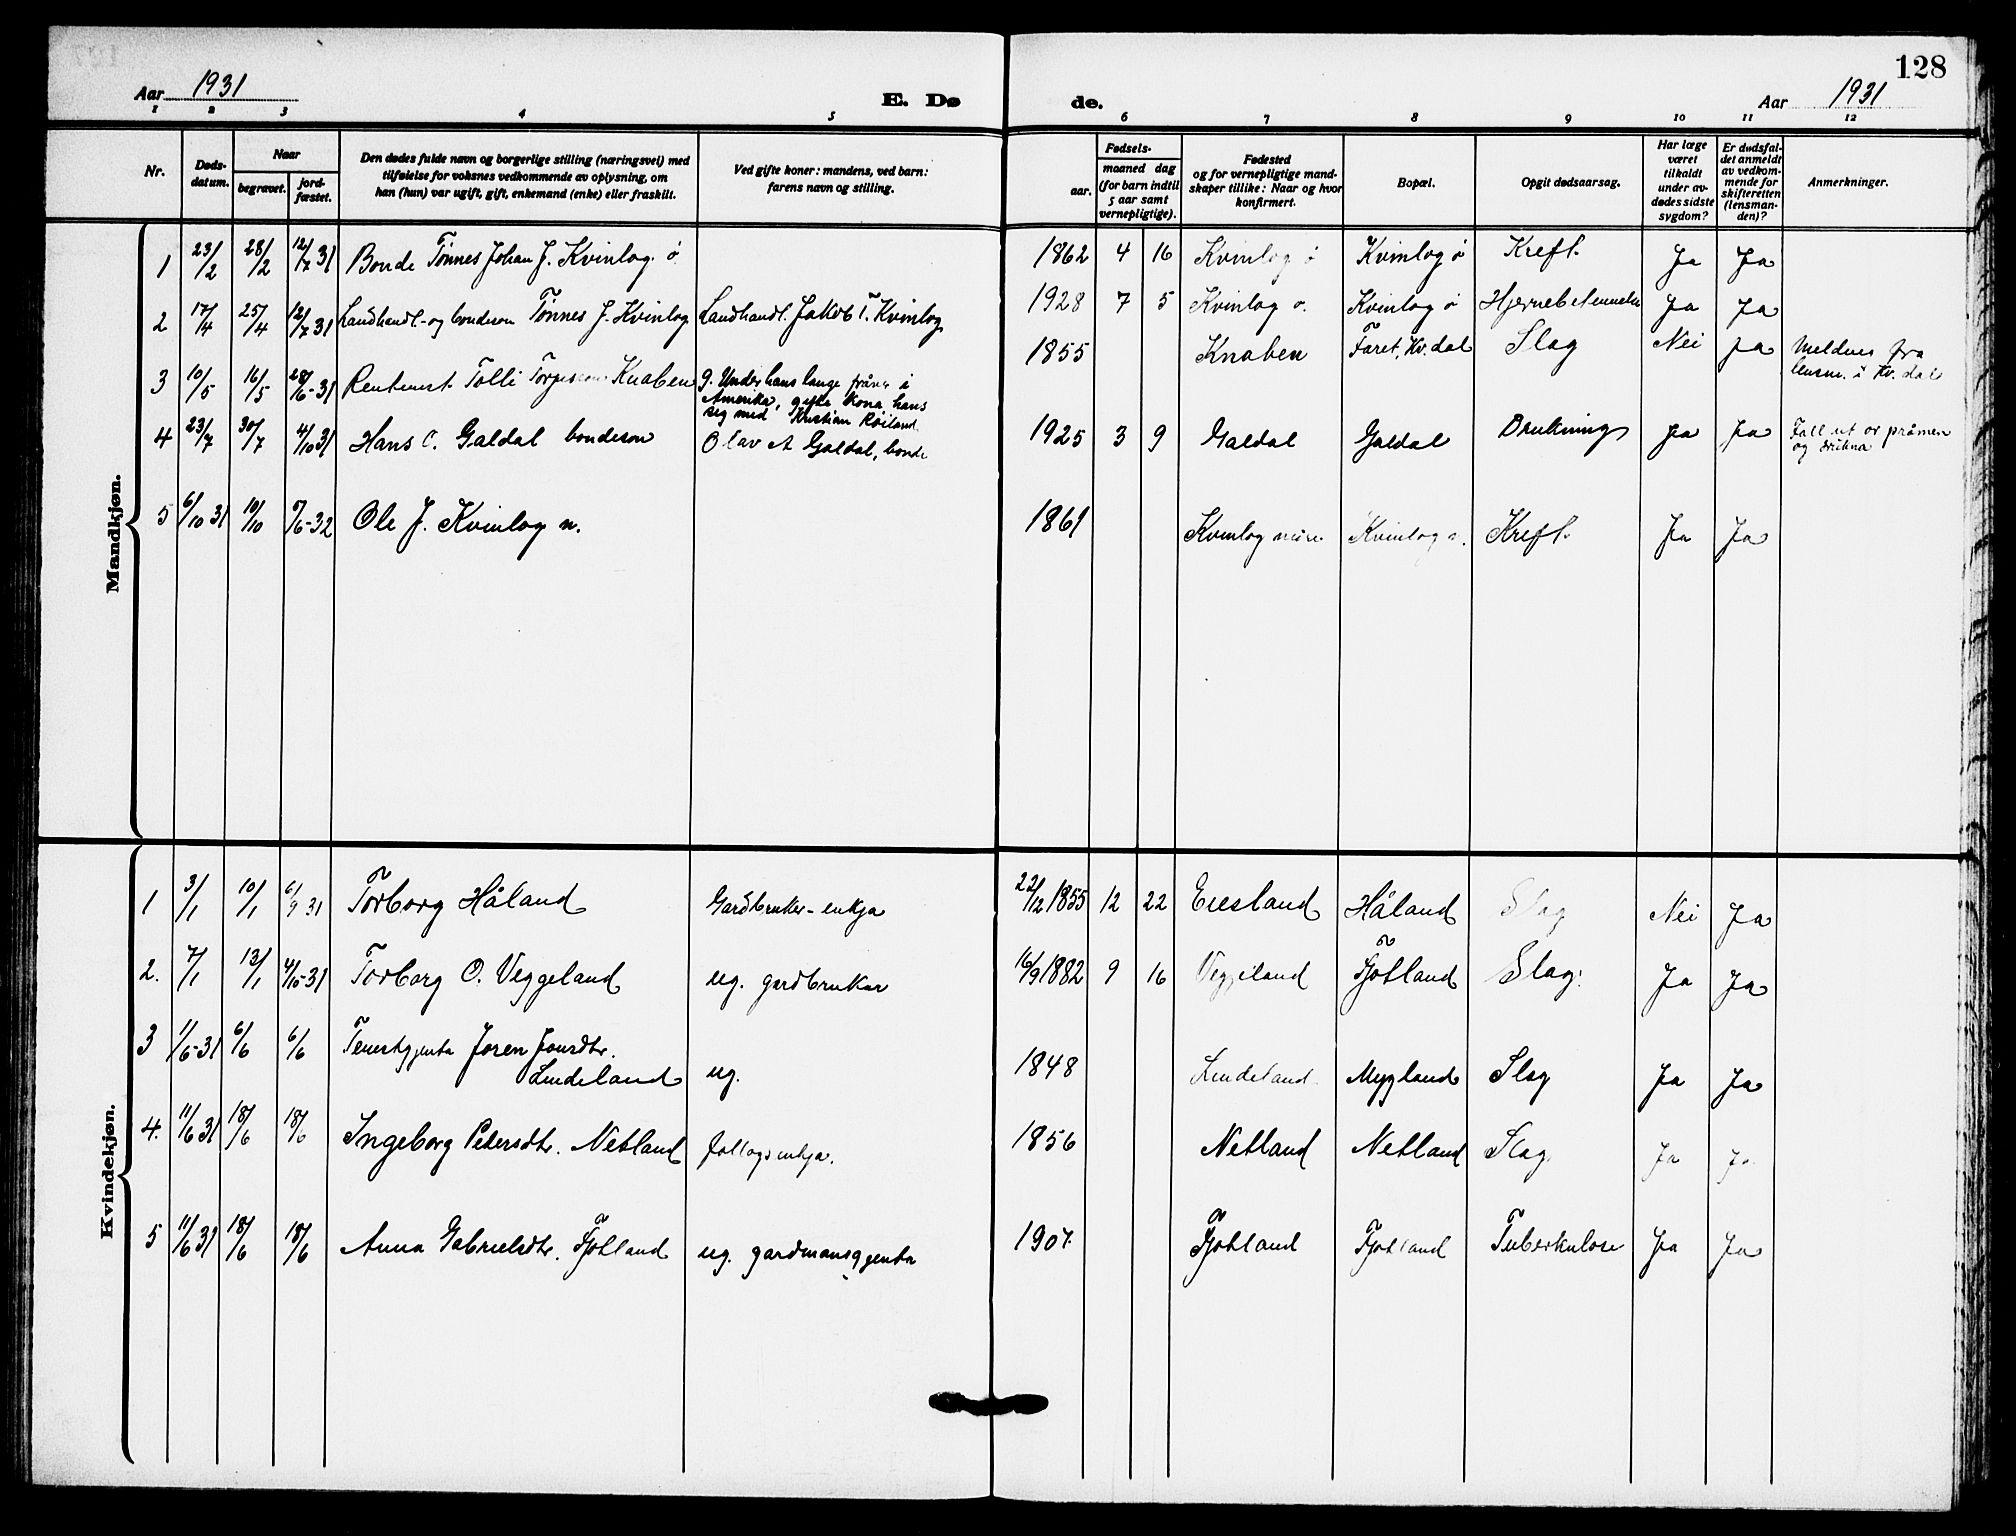 128
Aar 1931
E. Dø
de.
Aar 1931
1 2 3 4 5 6 7 8 9 10 11 12
Nr.
Døds-
datum.
Naar
begravet.
jord-
fæstet.
Den dødes fulde navn og borgerlige stilling (næringsvei) med
tilføielse for voksnes vedkommende av oplysning, om
han (hun) var ugift, gift, enkemand (enke) eller fraskilt.
Ved gifte koner: mandens, ved barn:
farens navn og stilling.
Fødsels-
aar.
maaned dag
(for barn indtil
5 aar samt
vernepligtige).
Fødested
og for vernepligtige mand-
skaper tillike: Naar og hvor
konfirmert.
Bopæl.
Opgit dødsaarsag.
Har læge
været
tilkaldt
under av-
dødes sidste
sygdom?
Er dødsfal-
det anmeldt
av vedkom-
mende for
skifteretten
(lensman-
den)?
Anmerkninger.
Mandkjøn.
1 23/2 28/2 12/7 31 Bonde Tønnes Johan J. Kvinlog ø 1862 4 16 Kvinlog ø Kvinlog ø Kreft. Ja Ja
2 17/4 25/4 12/7 31 Landhandl.- og bondeson Tønnes J. Kvinlog Landhandl. Jakob T. Kvinlog 1928 7 5 Kvinlog ø. Kvinlog ø Ja Ja
3 10/5 16/5 28/6-31 Rentenist Tolli Knaben g. Under hans lange fråver i
Amerika, gifte kona hans
seg med Kristian Røiland
1855 Knaben Faret, Kv.dal Slag Nei Ja Meldnes fra
lensm. i Kv. dal
4 23/7 30/7 4/10 31 Hans O. Galdal bondeson Olav A Galdal, bonde 1925 3 9 Galdal Galdal Drukning Ja Ja Fall ut or pråmen
og drukna
5 6/10 31 10/10 5/6-32 Ole J. Kvinlog n. 1861 Kvinlog Kvinlog n. Kreft. Ja Ja
Kvindekjøn.
1 3/1 10/1 6/9 31 Torborg Håland Gardbruker-enkja 22/12 1855 12 22 Eiesland Håland Slag Nei Ja
2. 7/1 13/1 4/10-31 Torborg O. Veggeland ug. gardbrukar 16/9 1882 9 16 Veggeland Fjotland Slag. Ja Ja
3 1/6-31 6/6 6/6 Tenestgjenta Joren Jonsdtr.
Lindeland ug. 1848 Lindeland Mygland Slag Ja Ja
4. 11/6 31 18/6 18/6 Ingeborg Petersdtr. Netland follogsenkja. 1856 Netland Netland Slag. Ja Ja
5 11/6 31 18/6 18/6 Anna Gabrielsdtr. Fjotland ug. gardmansgjenta 1907. Fjotland Fjotland Tuberkulose Ja Ja